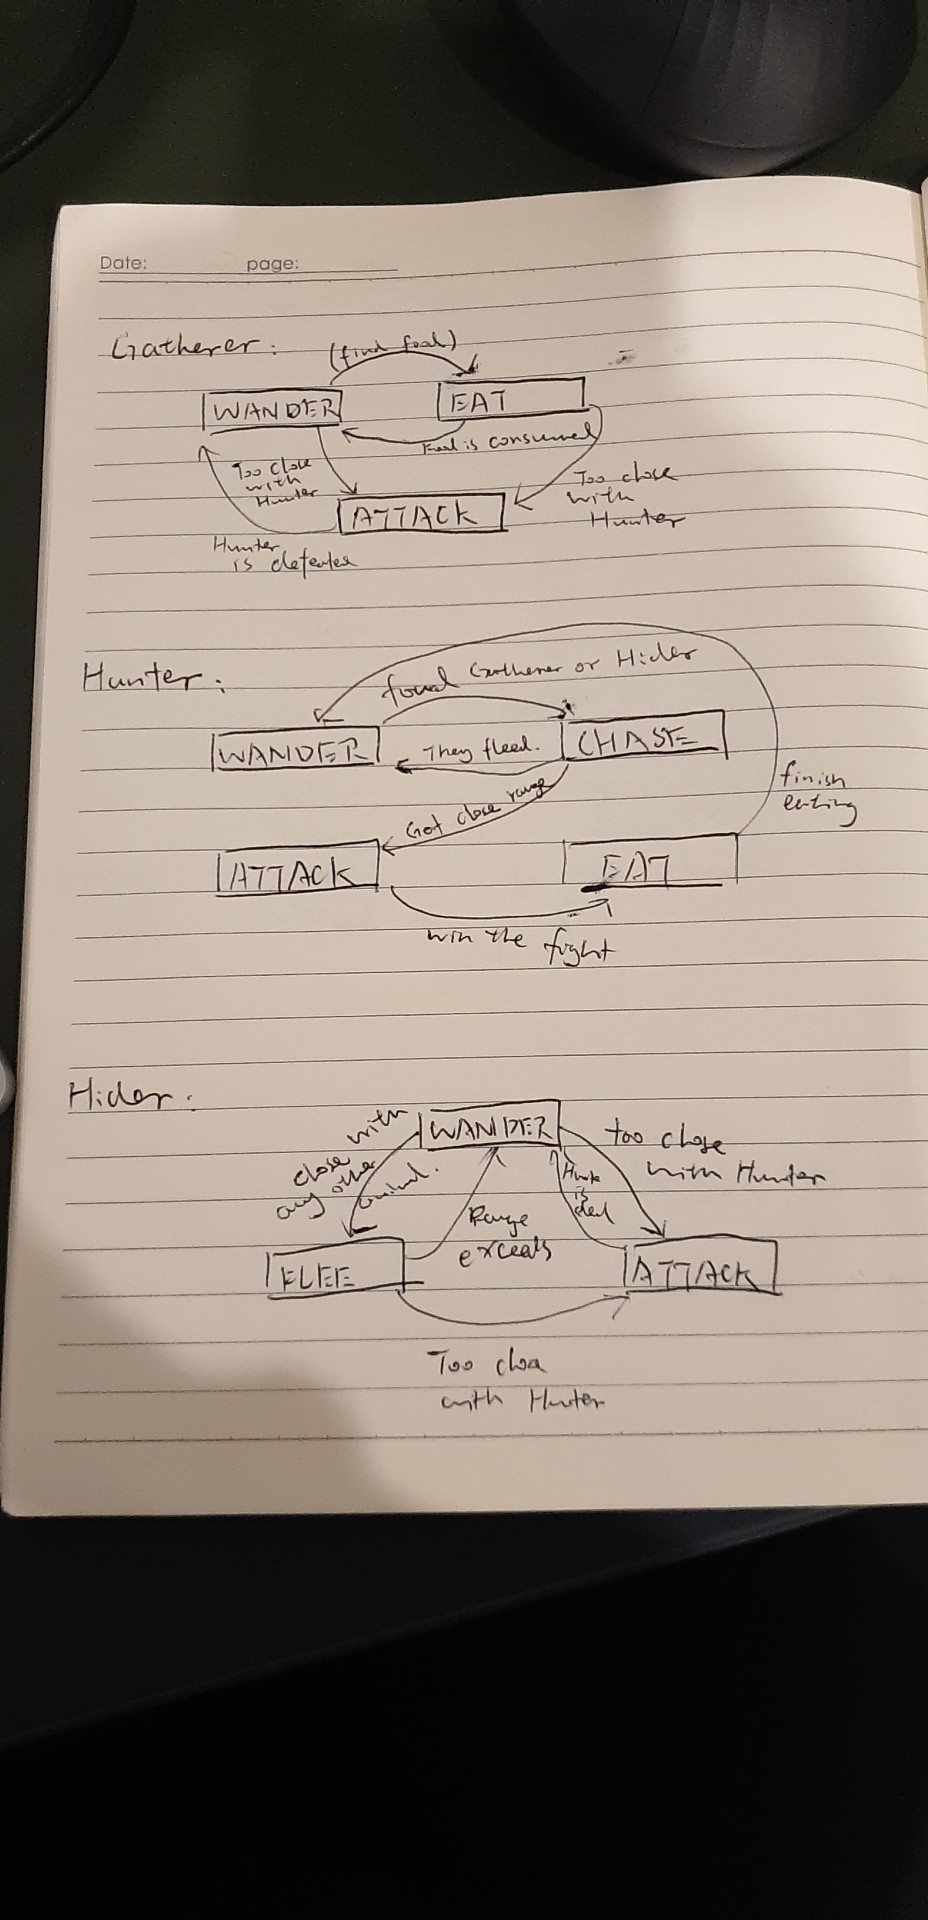 Date: page:
Gatherer:
(find food)
WANDER
EAT
Food is consumed
Too close
with
Hunter
Too close
with
Hunter
ATTACK
Hunter
is defeated
Hunter:
found Gatherer or Hider
WANDER
They fleed.
CHASE
Got close range
finish
eating
ATTACK
EAT
win the fight
Hider:
WANDER
close with
any other
animal.
too close
with Hunter
Hunte
is
Range
exceeds
FLEE
ATTACK
Too
with Hunter